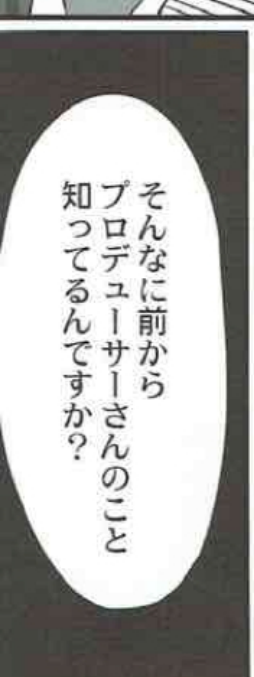 そんなに前から
プロデューサーさんのこと
知ってるんですか？